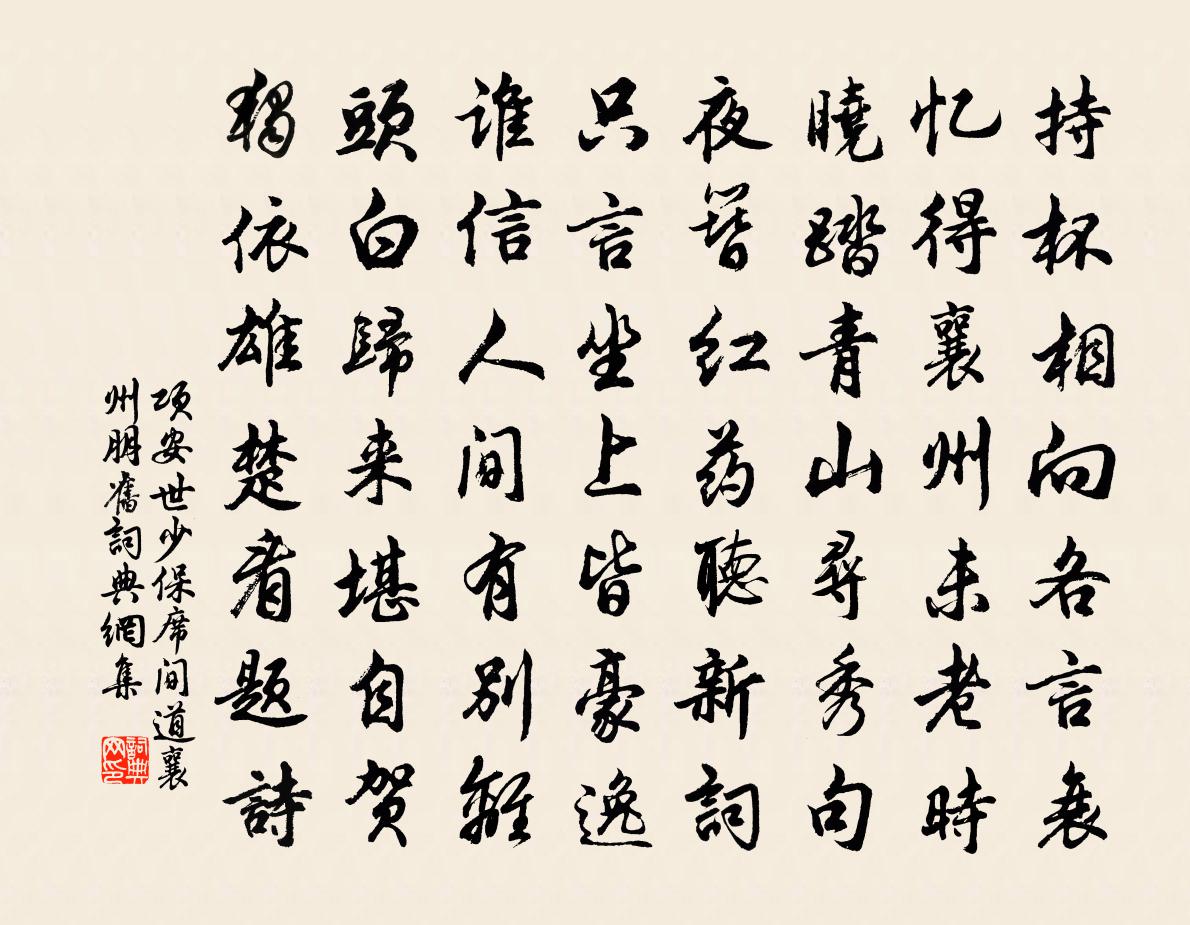 持杯相向各言衰
忆得襄州未老時
曉踏青山尋秀句
夜簪红药聽新詞
只言坐上皆豪逸
谁信人间有別離
頭白歸来堪自贺
獨依雄楚看题詩
项安世少保席间道襄
州朋舊詞典網集
詞典网印